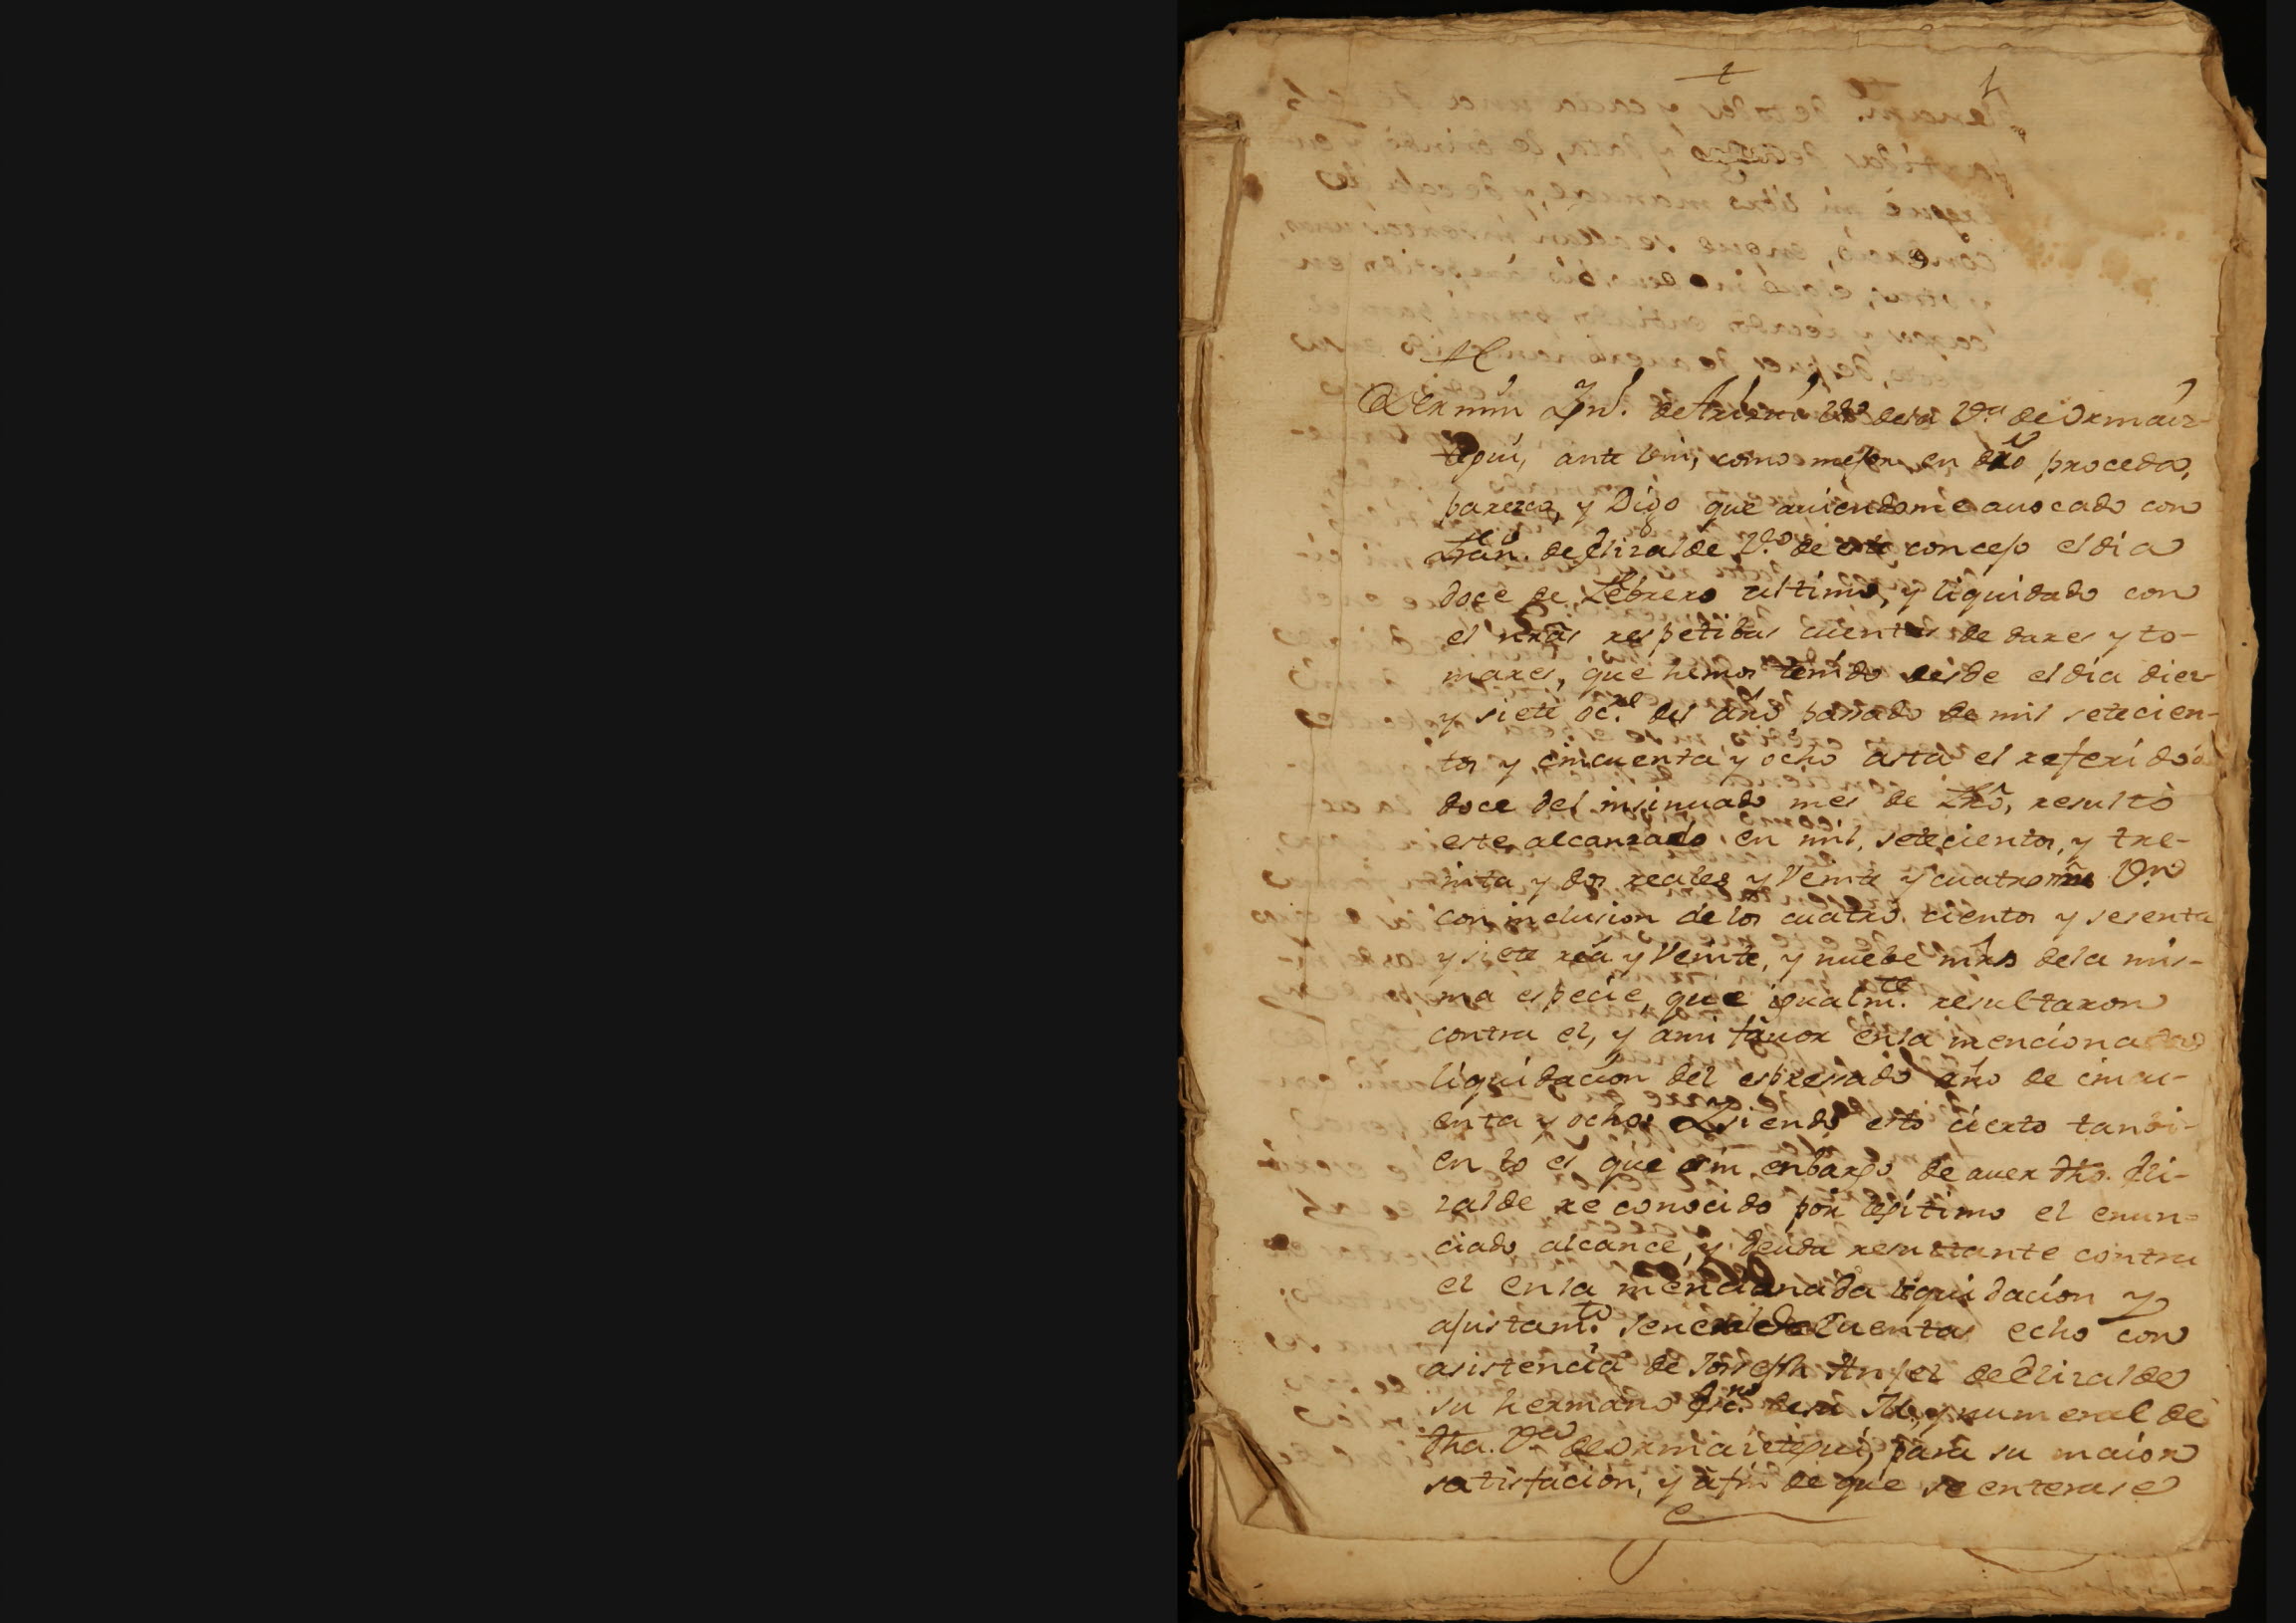 1
Fermin Ign.º de Vº dela Vª de Ormaiz-
tegui, ante Vm, como mejor en dro proceda,
parezco, y Digo que auiendome auocado con
Fran.co de Elizalde Vº de este concejo el dia
doce de Febrero ultimo, y liquidado con
el nrãs respetibas cuentas de dares y to-
mares, que hemos tenido desde el dia diez
y siete oc.re del año pasado de mil setecien-
tos y cincuenta y ocho asta el referido
doce del insinuado mes de Fro, resultó
este alcanzado en mil, setecientos, y tre-
inta y dos reales y Veinte y cuatro mrs Vn
con inclusion de los cuatro cientos y sesenta
y siete rea.s y Veinte, y nuebe mrs dela mis-
ma especie, que igualm.te resultaron
contra el, y ami fauor enla mencionada
liquidacion del espresado año de cincu-
enta y ocho: Isiendo esto cierto tanbi-
en lo es que sin enbargo de auer dho Eli-
zalde reconocido por lejitimo el enun-
ciado alcance, y deuda resultante contra
el enla mencionada liquidacion y
ajustam.to Jeneral de Cuentas echo con
asistencia de Joseph Anjel de Elizalde
su hermano y numeral de
dha. Vª de Ormaiztegui, para su maior
satisfacion, y a fin de que se enterase